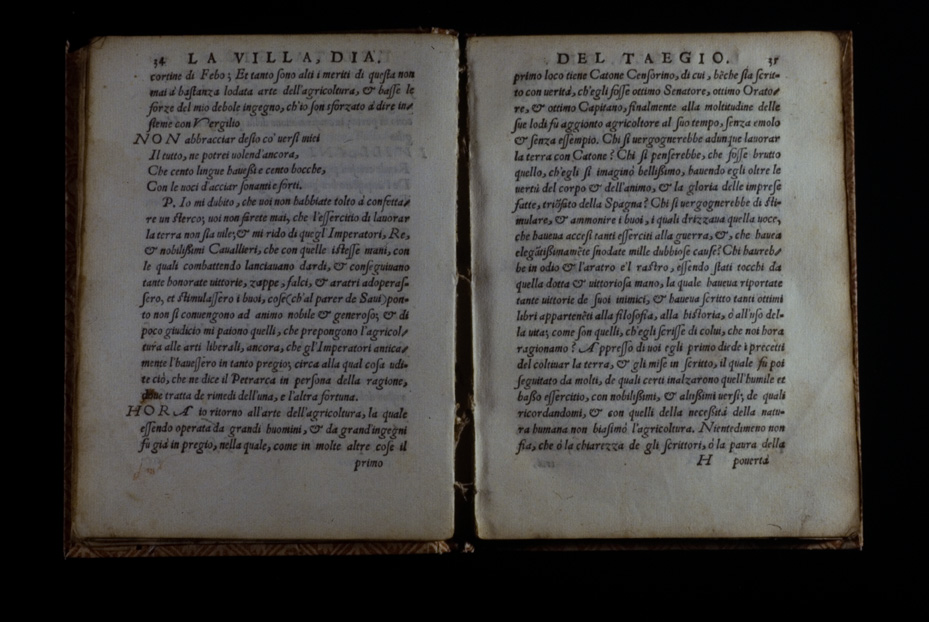 34 LA VILLA, DIA.
cortine di Febo; Et tanto sono alti i meriti di questa non
mai à bastanza lodata arte dell'agricoltura, & basse le
forze del mio debole ingegno, ch'io son sforzato à dire in/
sieme con Vergilio
NON abbracciar desio co' uersi miei
Il tutto, ne potrei uolend'ancora,
Che cento lingue hauessi e cento bocche,
Con le uoci d'acciar sonanti e forti.
P. Io mi dubito, che uoi non habbiate tolto à confetta/
re un sterco; uoi non farete mai, che l'essercitio di lauorar
la terra non sia uile; & mi rido di quegl'Imperatori, Re,
& nobilissimi Cauallieri, che con quelle istesse mani, con
le quali combattendo lanciauano dardi, & conseguiuano
tante honorate uittorie, zappe, falci, & aratri adoperas-
sero, et stimulassero i buoi, cose (ch'al parer de Saui) pon-
to non si conuengono ad animo nobile & generoso; & di
poco giudicio mi paiono quelli, che prepongono l'agricol/
tura alle arti liberali, ancora, che gl'Imperatori antica/
mente l'hauessero in tanto pregio; circa alla qual cosa udi-
te ciò, che ne dice il Petrarca in persona della ragione,
doue tratta de rimedi dell'una, e l'altra fortuna.
HORA io ritorno all'arte dell'agricoltura, la quale
essendo operata da grandi huomini, & da grand'ingegni
fù già in pregio, nella quale, come in molte altre cose il
primo
DEL TAEGIO. 35
primo loco tiene Catone Censorino, di cui, bẽche sia scrit-
to con uerità, ch'egli fosse ottimo Senatore, ottimo Orato/
re, & ottimo Capitano, finalmente alla moltitudine delle
sue lodi fù aggionto agricoltore al suo tempo, senza emolo
& senza essempio. Chi si uergognerebbe adunque lauorar
la terra con Catone? Chi si penserebbe, che fosse brutto
quello, ch'egli si imaginò bellissimo, hauendo egli oltre le
uertù del corpo & dell'animo, & la gloria delle imprese
fatte, triõfato della Spagna? Chi si uergognerebbe di sti-
mulare, & ammonire i buoi, i quali drizzaua quella uoce,
che haueua accesi tanti esserciti alla guerra, &, che hauea
elegãtissimamẽte snodate mille dubbiose cause? Chi haureb/
be in odio & l'aratro e'l rastro, essendo stati tocchi da
quella dotta & uittoriosa mano, la quale haueua riportate
tante uittorie de suoi inimici, & haueua scritto tanti ottimi
libri appartenẽti alla filosofia, alla historia, ò all'uso del-
la uita; come son quelli, ch'egli scrisse di colui, che noi hora
ragionamo? Appresso di uoi egli primo diede i precetti
del coltiuar la terra, & gli mise in scritto, il quale fù poi
seguitato da molti, de quali certi inalzarono quell'humile et
basso essercitio, con nobilissimi, & altissimi uersi; de quali
ricordandomi, & con quelli della necessità della natu-
ra humana non biasimo l'agricoltura. Nientedimeno non
fia, che ò la chiarezza de gli scrittori, ò la paura della
H pouertà